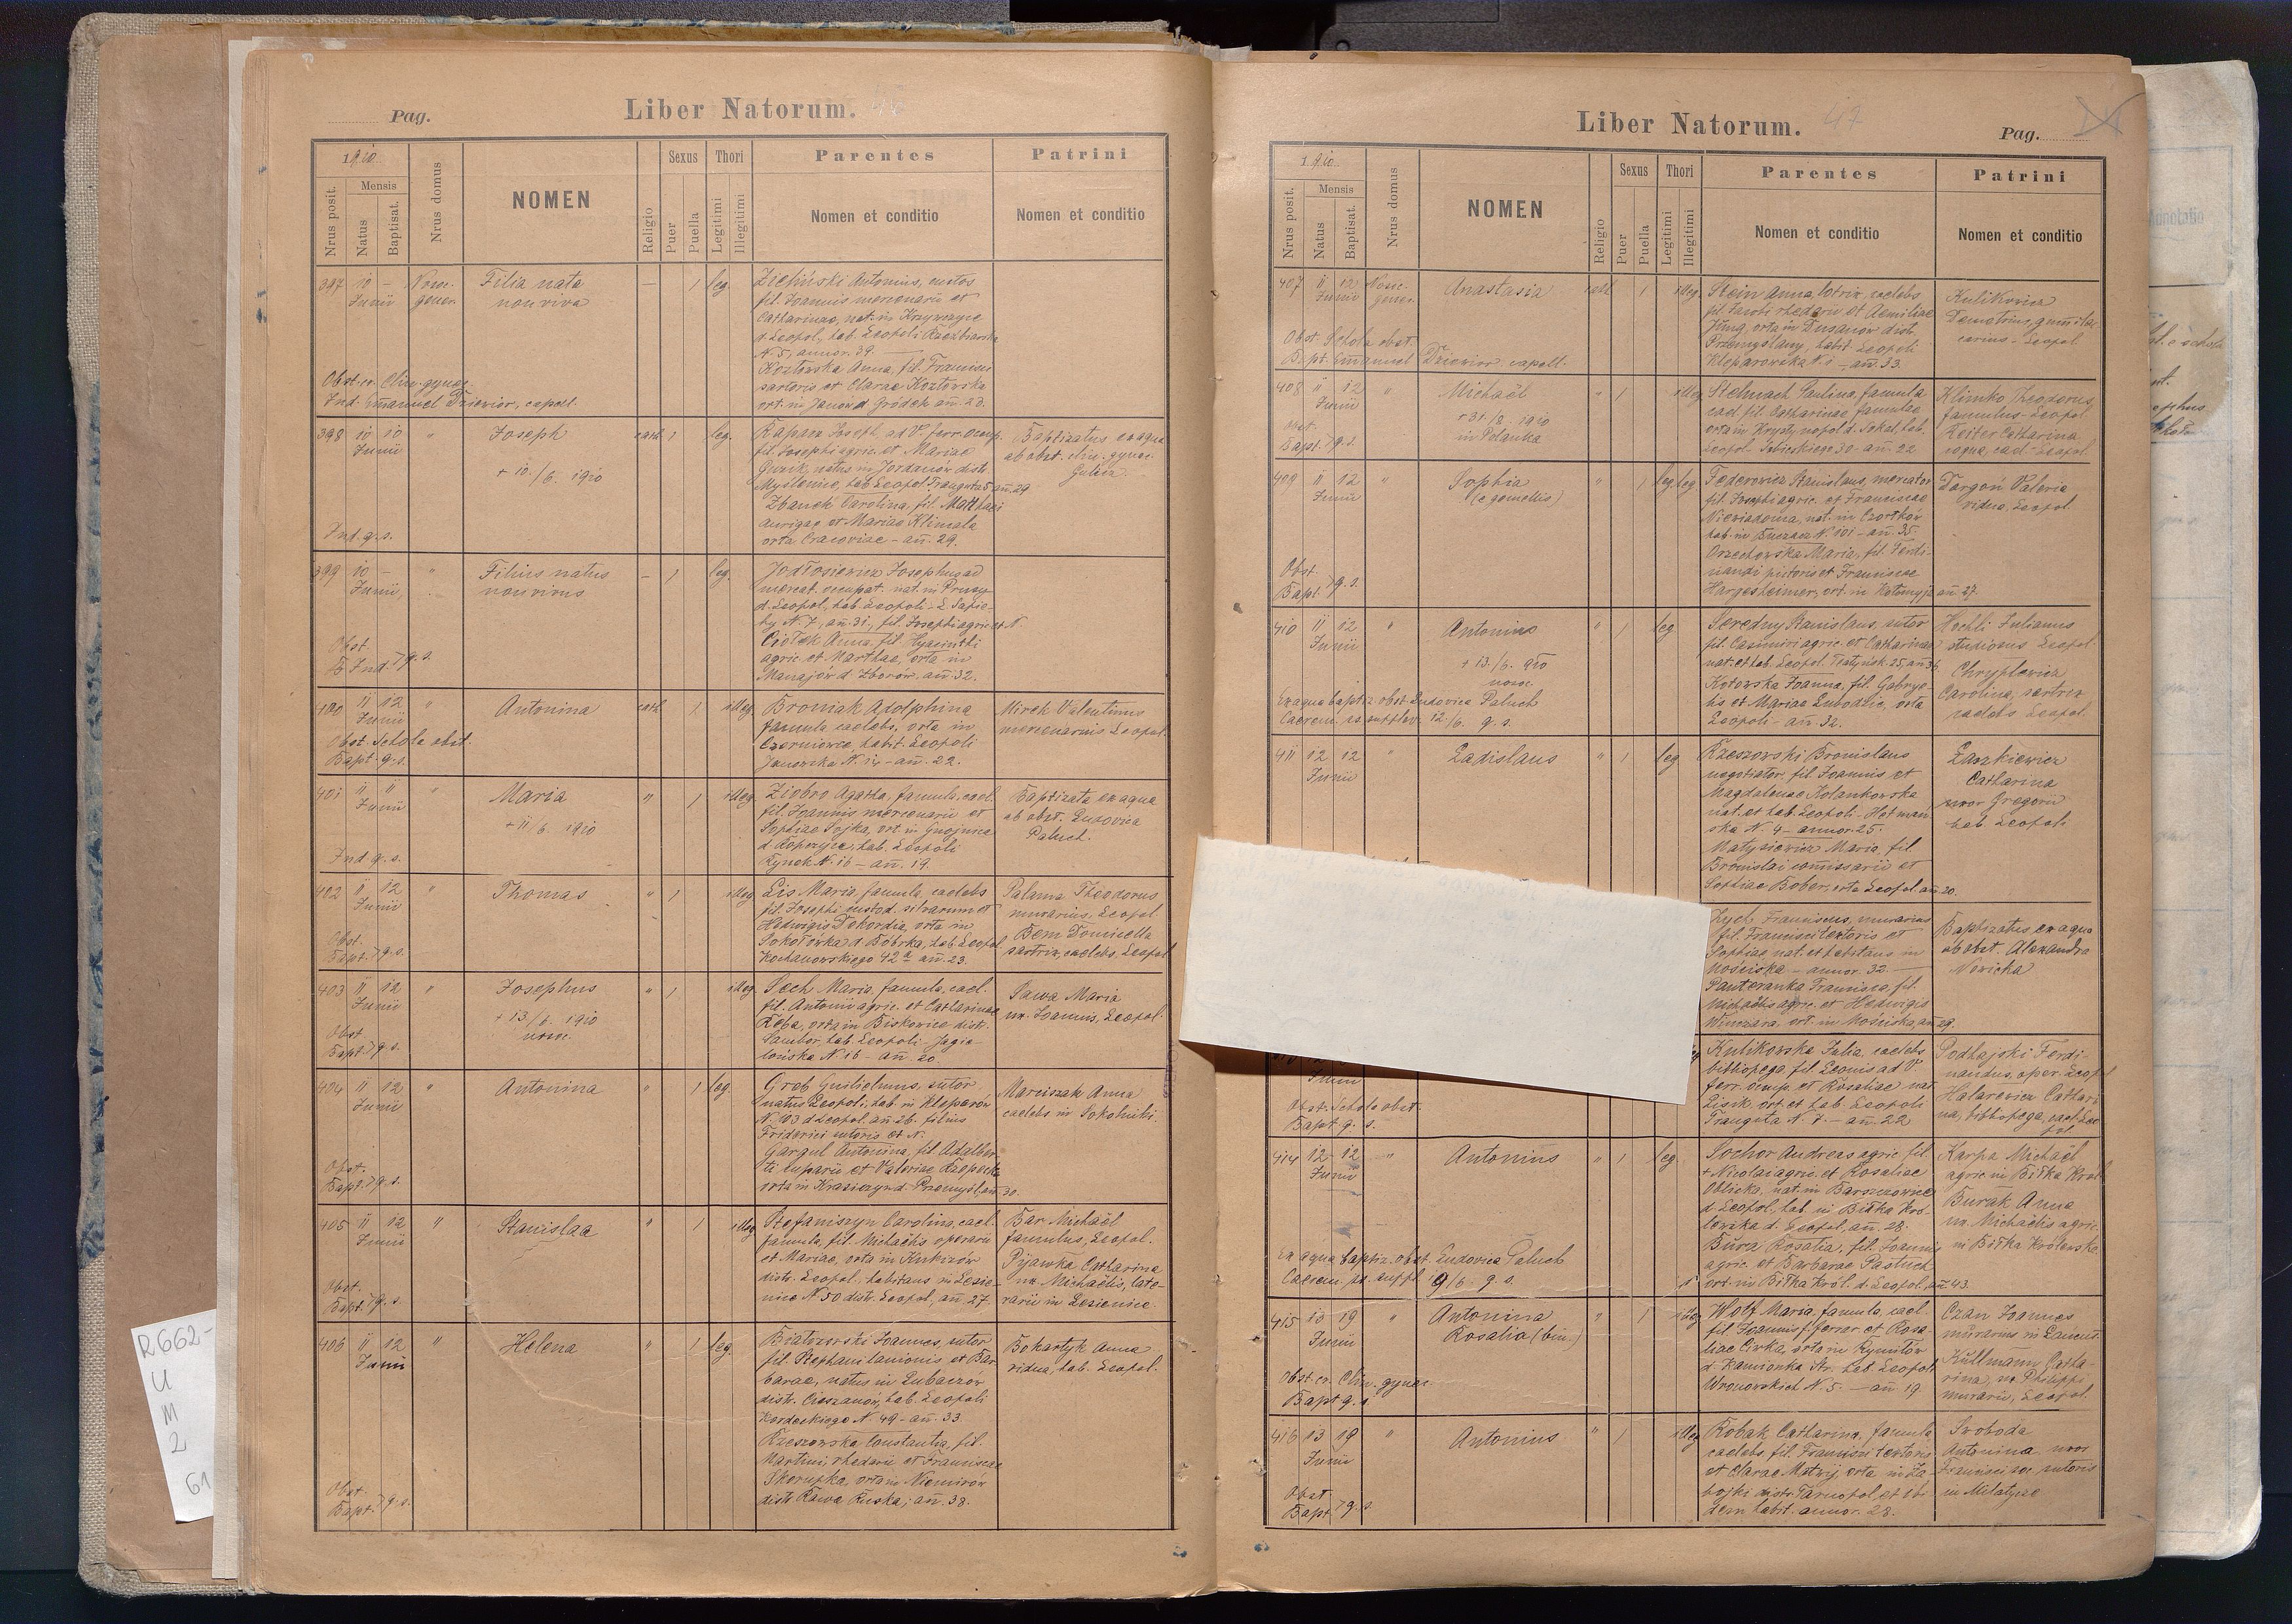 Liber Natorum. 46
Pag.
1910
Mensis
Nrus posit.
Natus
Baptisat.
Nrus domus
NOMEN
Religio
Sexus
Puer
Puella
Thori
Legitimi
Illegitimi
Parentes
Nomen et conditio
Patrini
Nomen et conditio
397 10 – Filia nata 1 leg. Zieliński Antonius, custos
Junii non viva fil. Joannis mercenarii et
Catharinae, nat. in Krzywczyce
d. Leopol., hab. Leopoli
N. 5, annor. 39.
Kozłowska Anna, fil. Francisci
sartoris et Clarae Kozłowska
ort. in Janów d. Gródek an. 23.
Obst. ex Clin. gynae.
Ind. Emanuel Dziewior, capell.
398 10 10 " Joseph cath 1 leg.
Junii + 10./6. 1910
fil. Josephi agric. et Mariae
natus in Jordanów distr.
Myślenice, hab. Leopol Traugutta 5 an. 29
Carolina, fil. Matthaei
aurigae et Mariae Klimala
orta Cracoviae – an. 29.
Baptizatus ex aqua
ab obst. clin. gynae.
Ind. q. s.
399 10 – " Filius natus – 1 leg.
Junii non vivus
Josephus ad
mercat. occupat. nat. in Prusy
d. Leopol, hab. Leopoli – L. Sapie-
hy N. 7, an. 31., fil. Josephi agric. et N.
Ciołek Anna, fil. Hyacinthi
agric. et Marthae, orta in
Manajów d. Zborów, an. 32.
Obst.
Ind. q. s.
400 11 12 " Antonina cath 1 illeg. Broniak Adolphina
Junii famula caelebs, orta in
Czerniowce, habit. Leopoli
Janowska N. 14 – an. 22.
Mirek Valentinus
mercenarius Leopol.
Obst. Schola obst.
Bapt. q. s.
401 11 11 " Maria " 1 illeg. Ziobro Agatha, famula, cael.
Junii + 11/6. 1910 fil. Joannis mercenarii et
Sophiae Sojka, ort. in Gnojnica
d. Ropczyce, hab. Leopoli
Rynek N. 16 – an. 19.
Baptizata ex aqua
ab obst. Ludovica
Paluch.
Ind q. s.
402 11 12 " Thomas " 1 illeg. Lis Maria, famula, caelebs
Junii fil. Josephi custod. silvarum et
Hedvigis Dokordia, orta in
Sokołówka d. Bóbrka, hab. Leopol.
Kochanowskiego 42a an. 23.
Palama Theodorus
murarius, Leopol
Bem Domicella
sartrix, caelebs, Leopol
Obst.
Bapt. q. s.
403 11 12 " Josephus " 1 illeg. Sech Maria, famula, cael.
Junii + 13/6. 1910 fil. Antonii agric. et Catharinae
Reba, orta in Biskowice distr.
Sambor, hab. Leopoli – Jagie-
lońska N. 16 – an. 20
Sawa Maria
ux. Joannis, Leopol.
Obst
Bapt. q. s.
404 11 12 " Antonina " 1 leg. Greb Guilielmus, sutor
Junii natus Leopoli, hab. in Kleparów
N. 103 d. Leopol. an. 26. filius
Friderici sutoris et N.
Gargul Antonina, fil. Adalber-
ti et Valeriae Rzepecka
orta in Krasiczyn d. Przemyśl, an. 30.
Marciszak Anna
caelebs in Sokolniki.
Obst.
Bapt. q. s.
405 11 12 " Stanislaa " 1 illeg. Stefaniszyn Carolina, cael.
Junii famula, fil. Michaëlis operarii
et Mariae, orta in Kukizów
distr. Leopol., habitans in Lesie-
nice N 50 distr. Leopol., an. 27.
Bar Michaël
famulus, Leopol.
Pijawka Catharina
ux. Michaëlis, late-
rarii in Lesienice.
Obst.
Bapt. q. s.
406 11 12 " Helena " 1 leg. Joannes, sutor
Junii fil. Stephani lanionis et Bar-
barae, natus in Lubaczów
distr. Cieszanów, hab. Leopoli
Kordeckiego N. 49 – an. 33.
Rzeszowska Constantia, fil.
Martini, rhedarii et Franciscae
Skorupka, orta in Niemirów
distr. Rawa Ruska, an. 38.
Bokartyk Anna
vidua, hab. Leopol.
Obst.
Bapt. q. s.
Liber Natorum. 47
Pag.
1910
Mensis
Nrus posit.
Natus
Baptisat.
Nrus domus
NOMEN
Religio
Sexus
Puer
Puella
Thori
Legitimi
Illegitimi
Parentes
Nomen et conditio
Patrini
Nomen et conditio
407 11 12 Anastasia cath 1 illeg. Stein Anna, lotrix, caelebs
Junii fil. Jacobi rhedarii et Aemiliae
Jung, orta in Dusanów distr.
Przemyślany, habit. Leopoli
Kleparowska N. 1 – an. 33.
Kulikowicz
Demetrius
Leopol
Obst. Schola obst.
Bapt. Emanuel Dziewior, capell.
408 11 12 " Michaël " 1 illeg. Stelmach Paulina, famula
Junii + 31/8. 1910 cael. fil. Catharinae famulae
in Polanka orta in Krystynopol d. Sokal, hab.
Leopol. Sobieskiego 30 – an. 22
Klimko Theodorus
famulus – Leopol
Reiter Catharina
coqua, cael. – Leopol.
Obst.
Bapt. q. s.
409 11 12 " Sophia " 1 leg. Federowicz Stanislaus, mercator
Junii (e gemellis) fil. Josephi agric. et Franciscae
Niewiadoma, nat. in Czortków
hab. in Buczacz N. 101 – an. 35.
Orzechowska Maria, fil. Ferdi-
nandi pistoris et Franciscae
Hargesheimer, ort. in Kołomyja an. 27.
Dorgoń Valeria
vidua, Leopol.
Obst.
Bapt. q. s.
410 11 12 " Antonius " 1 leg Seredny Stanislaus, sutor
Junii + 13./6. 910 fil. Casimiri agric. et Catharinae
nat. et hab. Leopol.
Kotowska Joanna, fil. Gabrye-
lis et Mariae, orta
Leopoli – an. 32.
Hochli Julianus
studiosus Leopol
Chryplewicz
Carolina, sartrix
caelebs Leopol.
Ex aqua baptiz. obst. Ludovica Paluch
Caerem. 12./6. q. s.
411 12 12 " Ladislaus " 1 leg Rzeszowski Bronislaus
Junii negotiator, fil. Joannis et
Magdalenae Kolankowska
nat. et hab. Leopoli – Hetmań-
ska N. 4 – annor. 25.
Matysiewicz Maria, fil.
Bronislai comissarii et
Sophiae Bober, orta Leopol an. 20.
Łaszkiewicz
Catharina
uxor Gregorii
hab. Leopoli
Franciscus, murarius
fil. Francisci textoris et
Sophiae nat. et habitans in
Mościska – annor. 32.
Panteranka Francisca, fil.
Michaëlis agric. et Hedvigis
Winczara, ort. in Mościska, an. 29.
Baptizatus ex aqua
ab obst. Alexandra
Nowicka
Junii Kulikowska Julia, caelebs
bibliopega, fil. Leonis ad V.
ferr. occup. et Rosaliae nat.
Lisik, ort. et hab. Leopoli
Traugutta N. 7. – an. 22
Podhajski Ferdi-
nandus, oper. Leopol
Cathari-
na, bibliopega, cael. Leo-
pol.
Obst. Schola obst.
Bapt q. s.
414 12 12 " Antonius " 1 leg. Sochor Andreas agric. fil.
Junii + Nicolai agric. et Rosaliae
Oblicka, nat. in Barszczowice
d. Leopol, hab. in Biłka Kró-
lewska d. Leopol, an. 28.
Bura Rosalia, fil. Joannis
agric. et Barbarae Pastuch
ort. in Biłka Król. d. Leopol, an. 43.
Karpa Michaël
agric. in Biłka Król.
Burak Anna
ux. Michaëlis agric.
in Biłka Królewska
Ex aqua baptiz. obst. Ludovica Paluch
Caerem. suppl. 19/6. q. s.
415 13 19 " Antonina " 1 illeg Wolf Maria, famula, cael.
Junii Rosalia (bin.) fil. Joannis f. ferrar. et Rosa-
liae Cirka, orta in Rymiłów
d. Kamionka Str. hab. Leopol
Wronowskich N. 5. – an. 19.
Czan Joannes
murarius
Kullmann Catha-
rina, ux. Philippi
murarii, Leopol.
Obst. ex Clin. gynae.
Bapt q. s.
416 13 19 " Antonius " 1 illeg Robak Catharina, famula
Junii caelebs, fil. Francisci textoris
et Clarae Matwij, orta in Za-
bojki distr. Tarnopol, et ibi-
dem habit. annor. 28.
Svoboda
Antonina uxor
Francisci sutoris
in Milatycze
Obst.
Bapt. q. s.
R662-
U
M
2
61